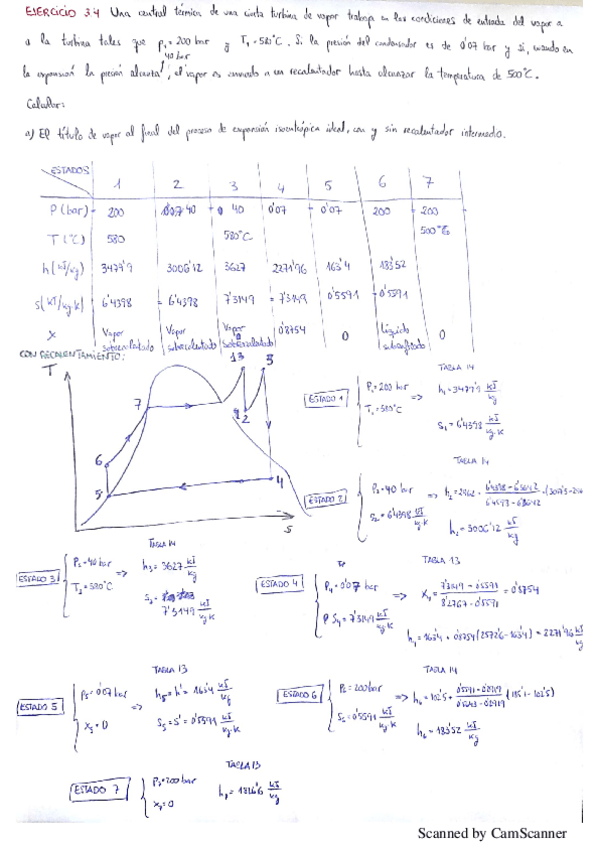 EJERCICIO 3.4 Una central térmica de una cierta turbina de vapor trabaja en las condiciones de entrada del vapor a
a la turbina tales que p₁ = 200 bar y T₁ = 580°C. Si la presión del condensador es de 0'07 bar y si, cuando en
40 bar
la expansión la presión alcanza, el vapor es enviado a un recalentador hasta alcanzar la temperatura de 500°C.
Calcular:
a) El título de vapor al final del proceso de expansión isoentrópica ideal, con y sin recalentador intermedio.
ESTADOS 1 2 3 4 5 6 7
P(bar) 200 40 40 0'07 0'07 200 200
T(°C) 580 580°C 500°C
h(kJ/kg) 3479'9 3006'12 3627 2271'96 163'4 183'52
s(kJ/kg·K) 6'4398 6'4398 7'3149 7'3149 0'5591 0'5591
x Vapor sobrecalentado Vapor sobrecalentado Vapor sobrecalentado 0'8754 0 Líquido subenfriado 0
CON RECALENTAMIENTO:
T
13 3
7
2
6
5
4
s
TABLA 14
ESTADO 1 P₁ = 200 bar T₁ = 580°C => h₁ = 3479'9 kJ/kg
s₁ = 6'4398 kJ/kg·K
TABLA 14
ESTADO 2 P₂ = 40 bar s₂ = 6'4398 kJ/kg·K =>
h₂ = 3006'12 kJ/kg
TABLA 14
ESTADO 3 P₃ = 40 bar T₃ = 580°C => h₃ = 3627 kJ/kg
7'3149 kJ/kg·K
TABLA 13
ESTADO 4 P₄ = 0'07 bar S₄ = 7'3149 kJ/kg·K => x₄ = (7'3149 - 0'5591)/(8'2767 - 0'5591) = 0'8754
h₄ = 163'4 + 0'8754 (2572'6 - 163'4) = 2271'96 kJ/kg
TABLA 13
ESTADO 5 P₅ = 0'07 bar x₅ = 0 => h₅ = h' = 163'4 kJ/kg
s₅ = s' = 0'5591 kJ/kg·K
TABLA 14
ESTADO 6 P₆ = 200 bar s₆ = 0'5591 kJ/kg·K =>
h₆ = 183'52 kJ/kg
TABLA 13
ESTADO 7 P₇ = 200 bar x₇ = 0 h₇ = 1826'6 kJ/kg
Scanned by CamScanner